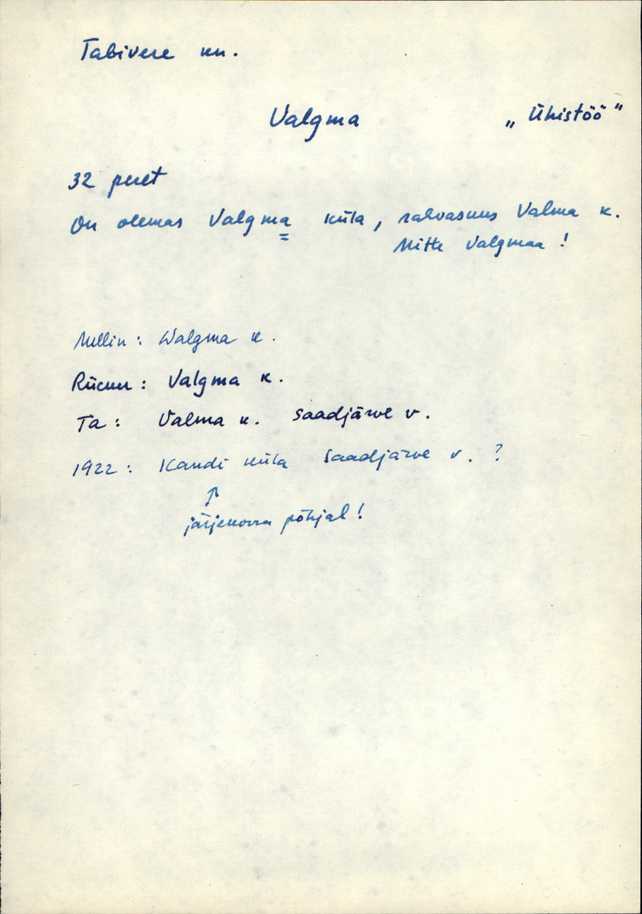 Tabivere kn.
Valgma „Ühistöö"
32 peret
On olemas Valgma küla, rahvasuus Valma k.
Mitte Valgmaa!
Mellin: Walgma k.
Rücker: Valgma k.
Ta: Valma k. Saadjärve v.
1922: Kandi küla Saadjärve v. ?
↑
järjekorra põhjal!